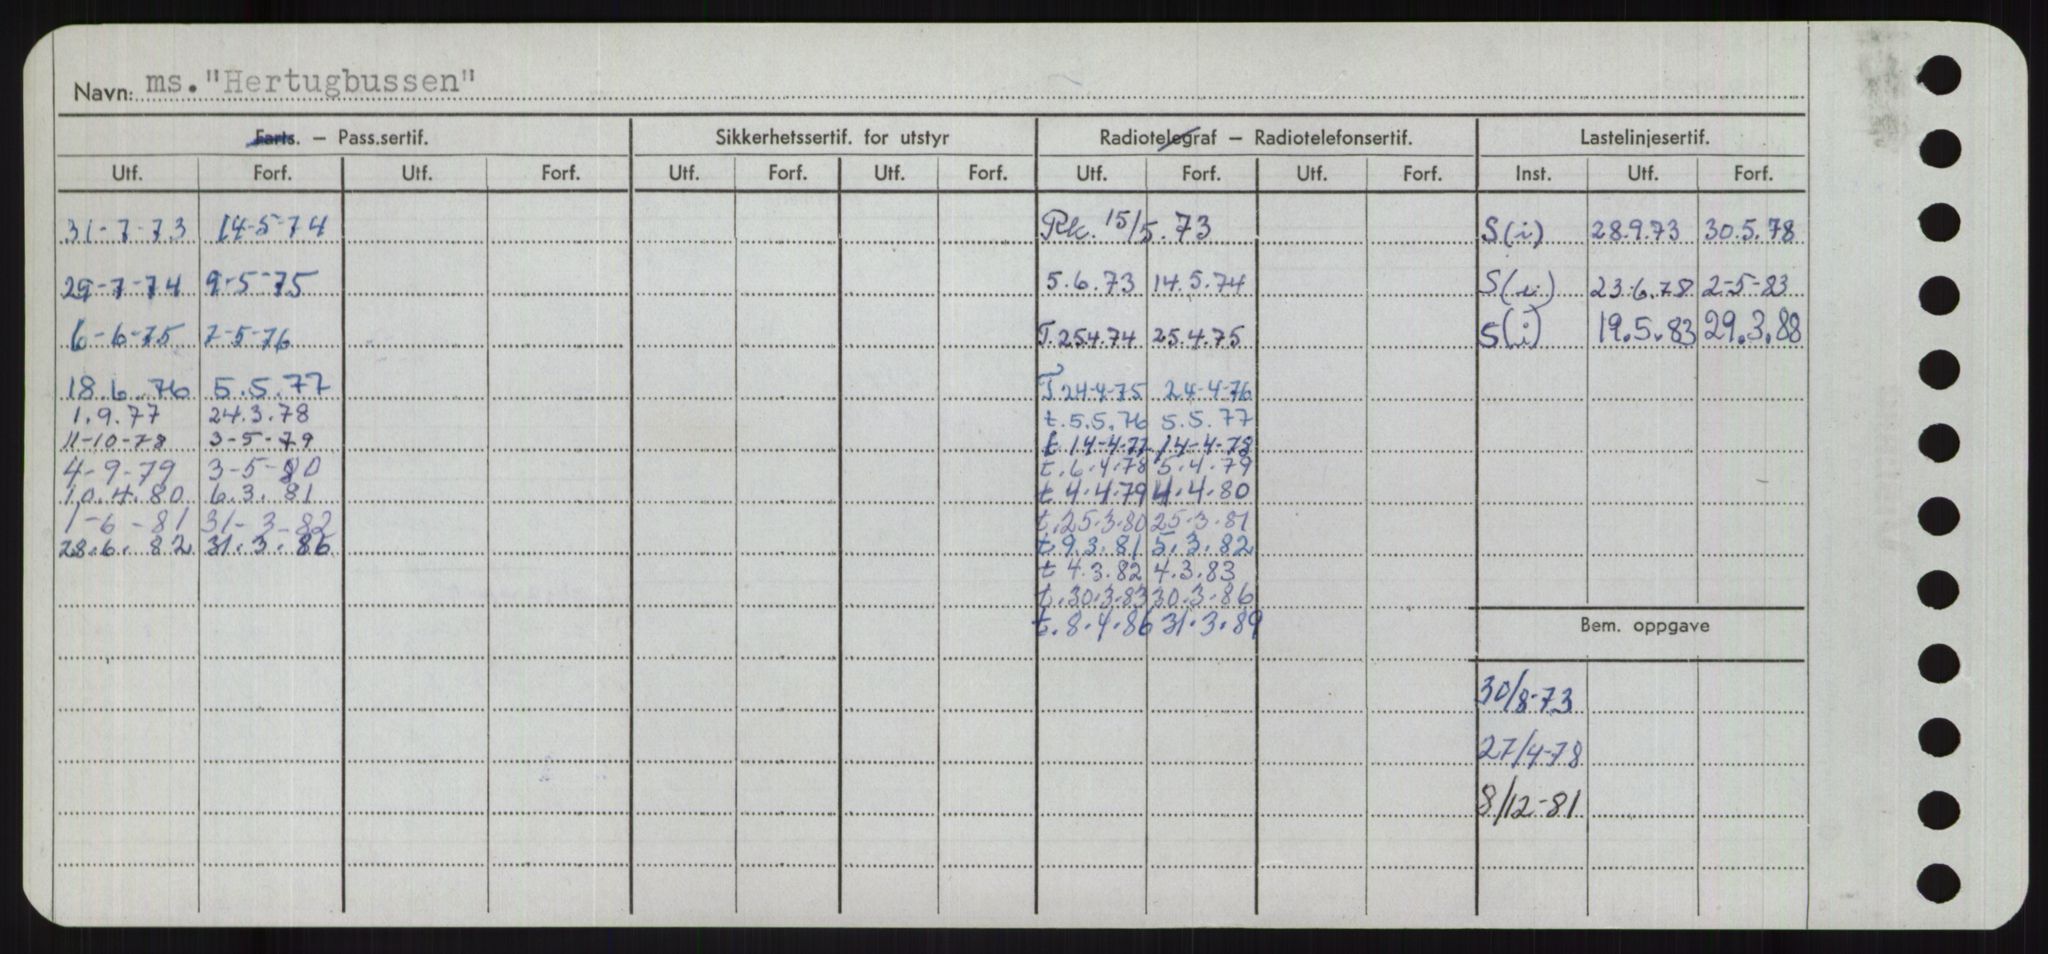 Navn: ms. "Hertugbussen"
Farts. – Pass.sertif. Sikkerhetssertif. for utstyr Radiotelegraf – Radiotelefonsertif. Lastelinjesertif.
Utf. Forf. Utf. Forf. Utf. Forf. Utf. Forf. Utf. Forf. Utf. Forf. Inst. Utf. Forf.
31-7-73 14-5-74 Rk. 15/5.73 S(i) 28.9.73 30.5.78
29-7-74 9-5-75 5.6.73 14.5.74 S(i) 23.6.78 2-5-83
6-6-75 7-5-76 T.25.4.74 25.4.75 S(i) 19.5.83 29.3.88
18.6.76 5.5.77 T 24-4-75 24-4-76
1.9.77 24.3.78 t.5.5.76 5.5.77
11-10-78 3-5-79 t.14-4-77 14-4-78
4-9-79 3-5-80 t.6.4.78 5.4.79
10.4.80 6.3.81 t 4.4.79 4.4.80
1-6-81 31-3-82 t.25.3.80 25.3.81
28.6.82 31.3.86 t.9.3.81 5.3.82
t 4.3.82 4.3.83
t.30.3.83 30.3.86
t.8.4.86 31.3.89
Bem. oppgave
30/8-73
27/4-78
8/12-81